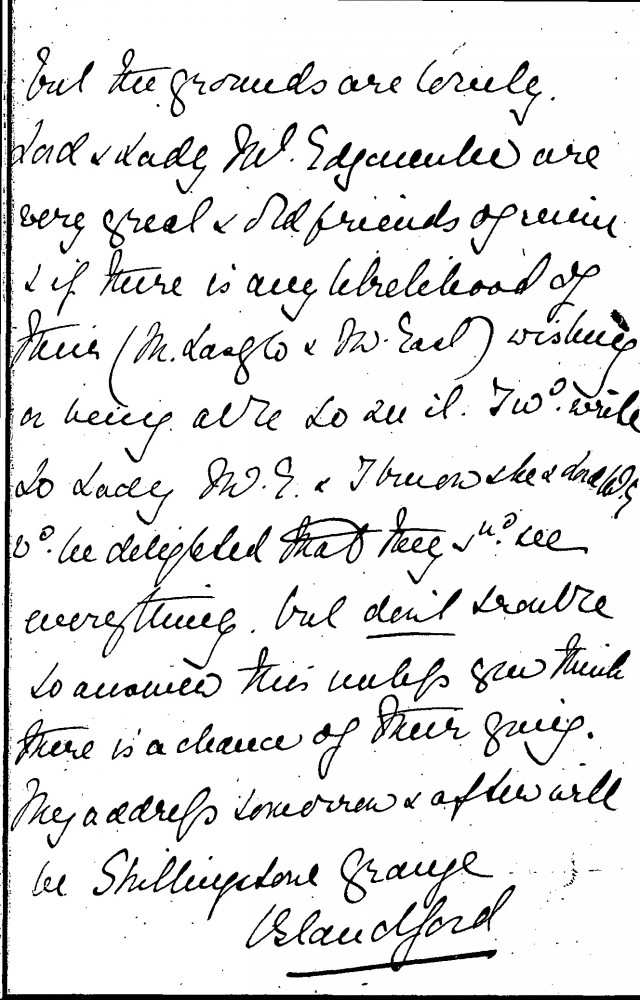 but the grounds are lovely.
Lord & Lady Mt. Edgcumbe are
very great & old friends of mine
& if there is any likelihood of
their (M. Laszlo & Mr. East) wishing
or being able to see it. I wd. write
to Lady Mt. E. & I know she & Lord Mt. E
wd. be delighted that they shd. see
everything. but don't trouble
to answer this unless you think
there is a chance of their going.
My address tomorrow & after will
be Shillingstone Grange
Blandford